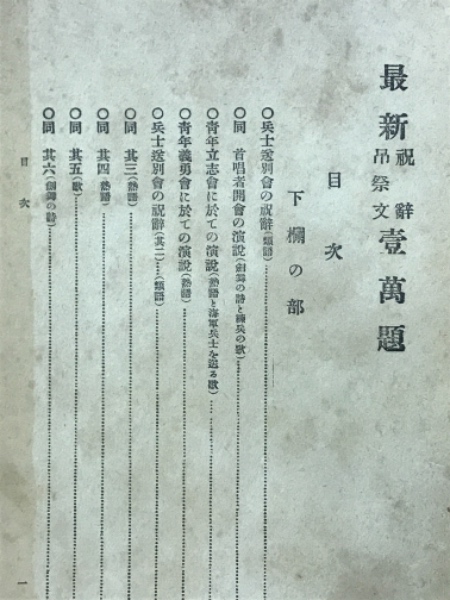 最新祝辭吊祭文壹萬題
目次
下欄の部
〇兵士送別會の祝辭(類語)
〇同 首唱者開會の演說(劍舞の詩と練兵の歌)
〇青年立志會に於ての演說(熟語と海軍兵士を送る歌)
〇青年義勇會に於ての演說(熟語)
〇兵士送別會の祝辭(其二)(類語)
〇同 其三(熟語)
〇同 其四(熟語)
〇同 其五(歌)
〇同 其六(劍舞の詩)
目次
一